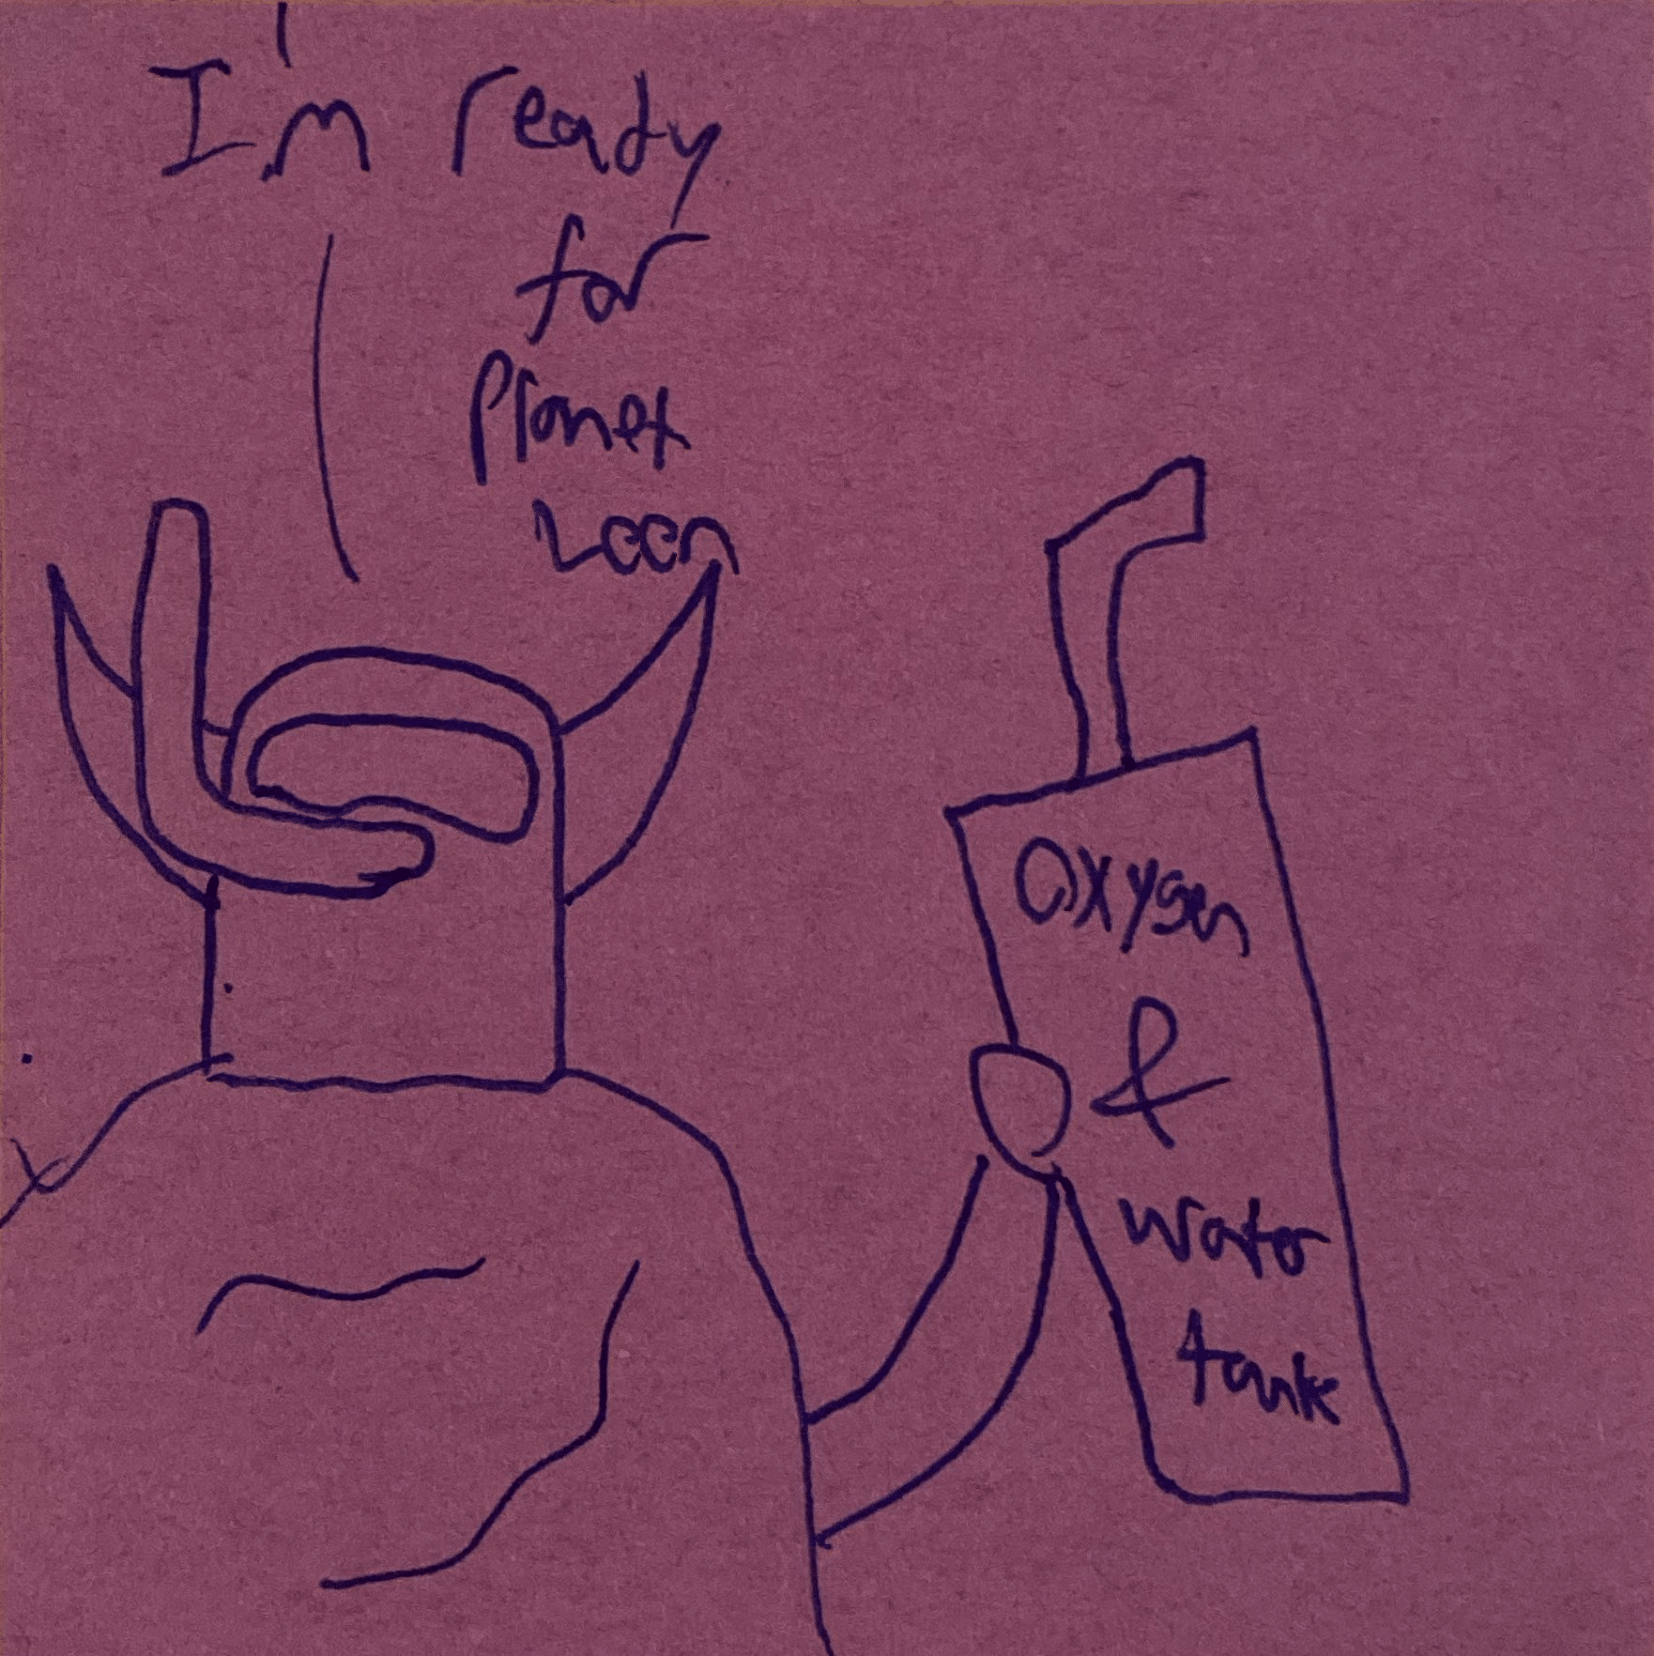 I'm ready
for
Planet
Loon
Oxygen
&
water
tank